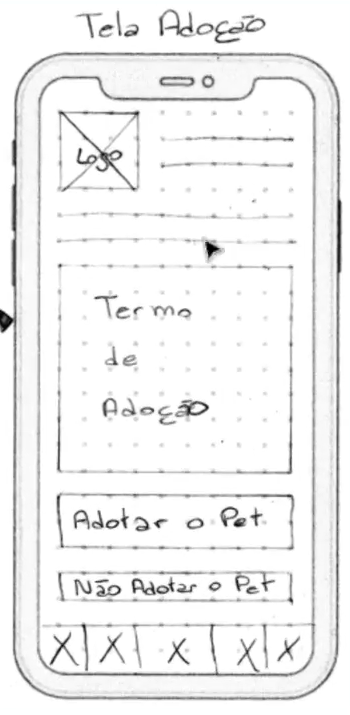 Tela Adoção
Logo
Termo
de
Adoção
Adotar o Pet
Não Adotar o Pet
X X X X X